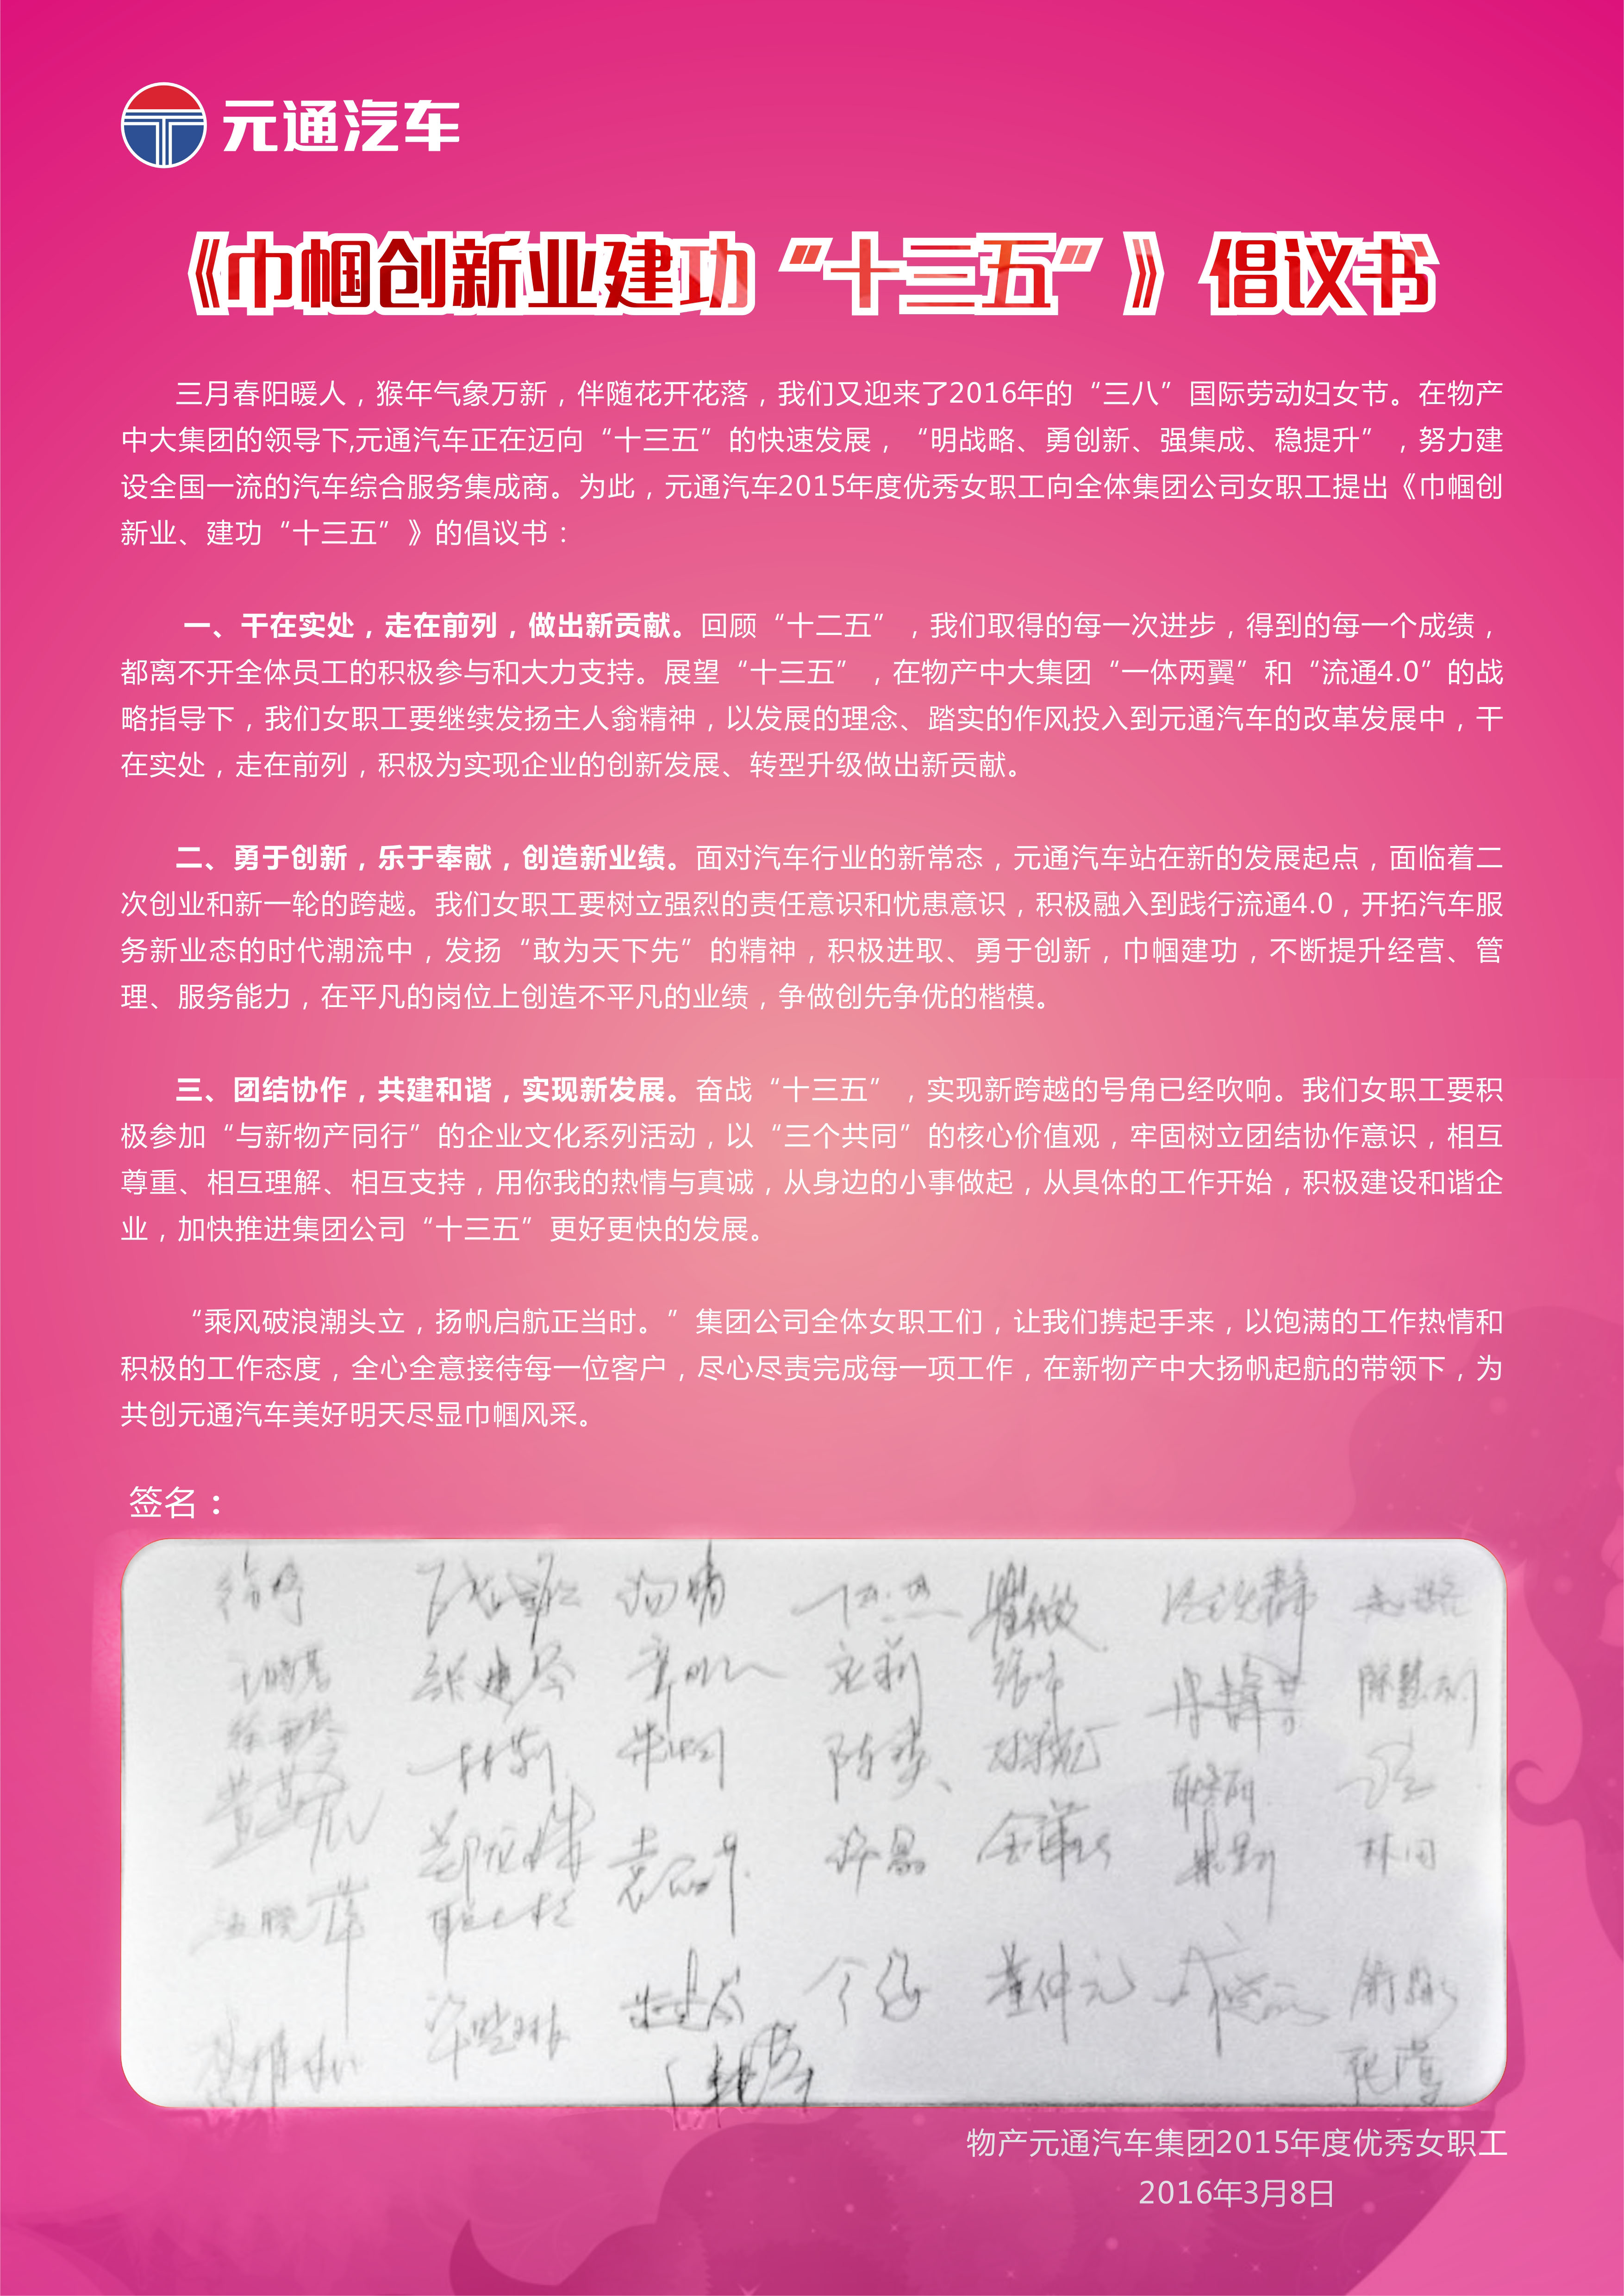 元通汽车
《巾帼创新业建功“十三五”》倡议书
三月春阳暖人，猴年气象万新，伴随花开花落，我们又迎来了2016年的“三八”国际劳动妇女节。在物产
中大集团的领导下,元通汽车正在迈向“十三五”的快速发展，“明战略、勇创新、强集成、稳提升”，努力建
设全国一流的汽车综合服务集成商。为此，元通汽车2015年度优秀女职工向全体集团公司女职工提出《巾帼创
新业、建功“十三五”》的倡议书：
一、干在实处，走在前列，做出新贡献。回顾“十二五”，我们取得的每一次进步，得到的每一个成绩，
都离不开全体员工的积极参与和大力支持。展望“十三五”，在物产中大集团“一体两翼”和“流通4.0”的战
略指导下，我们女职工要继续发扬主人翁精神，以发展的理念、踏实的作风投入到元通汽车的改革发展中，干
在实处，走在前列，积极为实现企业的创新发展、转型升级做出新贡献。
二、勇于创新，乐于奉献，创造新业绩。面对汽车行业的新常态，元通汽车站在新的发展起点，面临着二
次创业和新一轮的跨越。我们女职工要树立强烈的责任意识和忧患意识，积极融入到践行流通4.0，开拓汽车服
务新业态的时代潮流中，发扬“敢为天下先”的精神，积极进取、勇于创新，巾帼建功，不断提升经营、管
理、服务能力，在平凡的岗位上创造不平凡的业绩，争做创先争优的楷模。
三、团结协作，共建和谐，实现新发展。奋战“十三五”，实现新跨越的号角已经吹响。我们女职工要积
极参加“与新物产同行”的企业文化系列活动，以“三个共同”的核心价值观，牢固树立团结协作意识，相互
尊重、相互理解、相互支持，用你我的热情与真诚，从身边的小事做起，从具体的工作开始，积极建设和谐企
业，加快推进集团公司“十三五”更好更快的发展。
“乘风破浪潮头立，扬帆启航正当时。”集团公司全体女职工们，让我们携起手来，以饱满的工作热情和
积极的工作态度，全心全意接待每一位客户，尽心尽责完成每一项工作，在新物产中大扬帆起航的带领下，为
共创元通汽车美好明天尽显巾帼风采。
签名：
董仲元
物产元通汽车集团2015年度优秀女职工
2016年3月8日